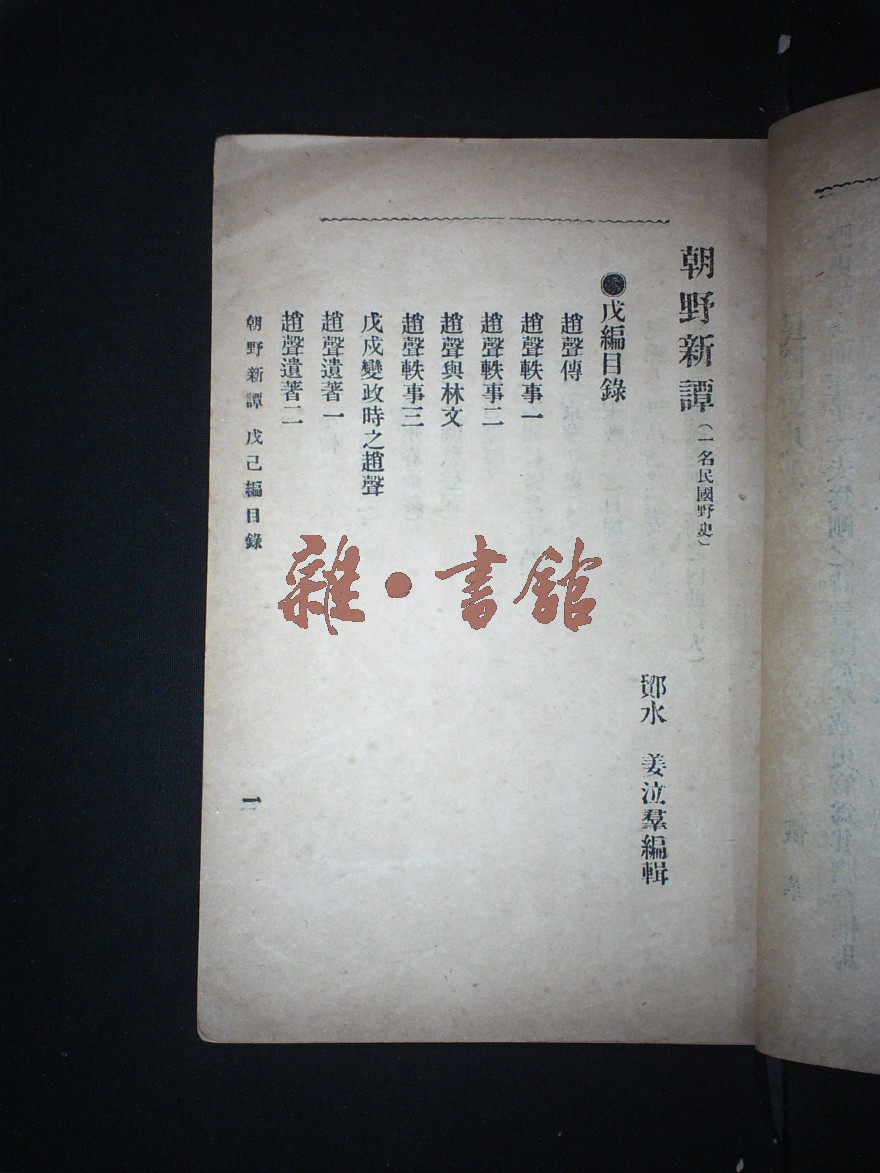 朝野新譚(一名民國野史)
鄮水 姜泣羣編輯
戊編目錄
趙聲傳
趙聲軼事一
趙聲軼事二
趙聲與林文
趙聲軼事三
戊戌變政時之趙聲
趙聲遺著一
趙聲遺著二
朝野新譚 戊己編目錄
一
雜·書館